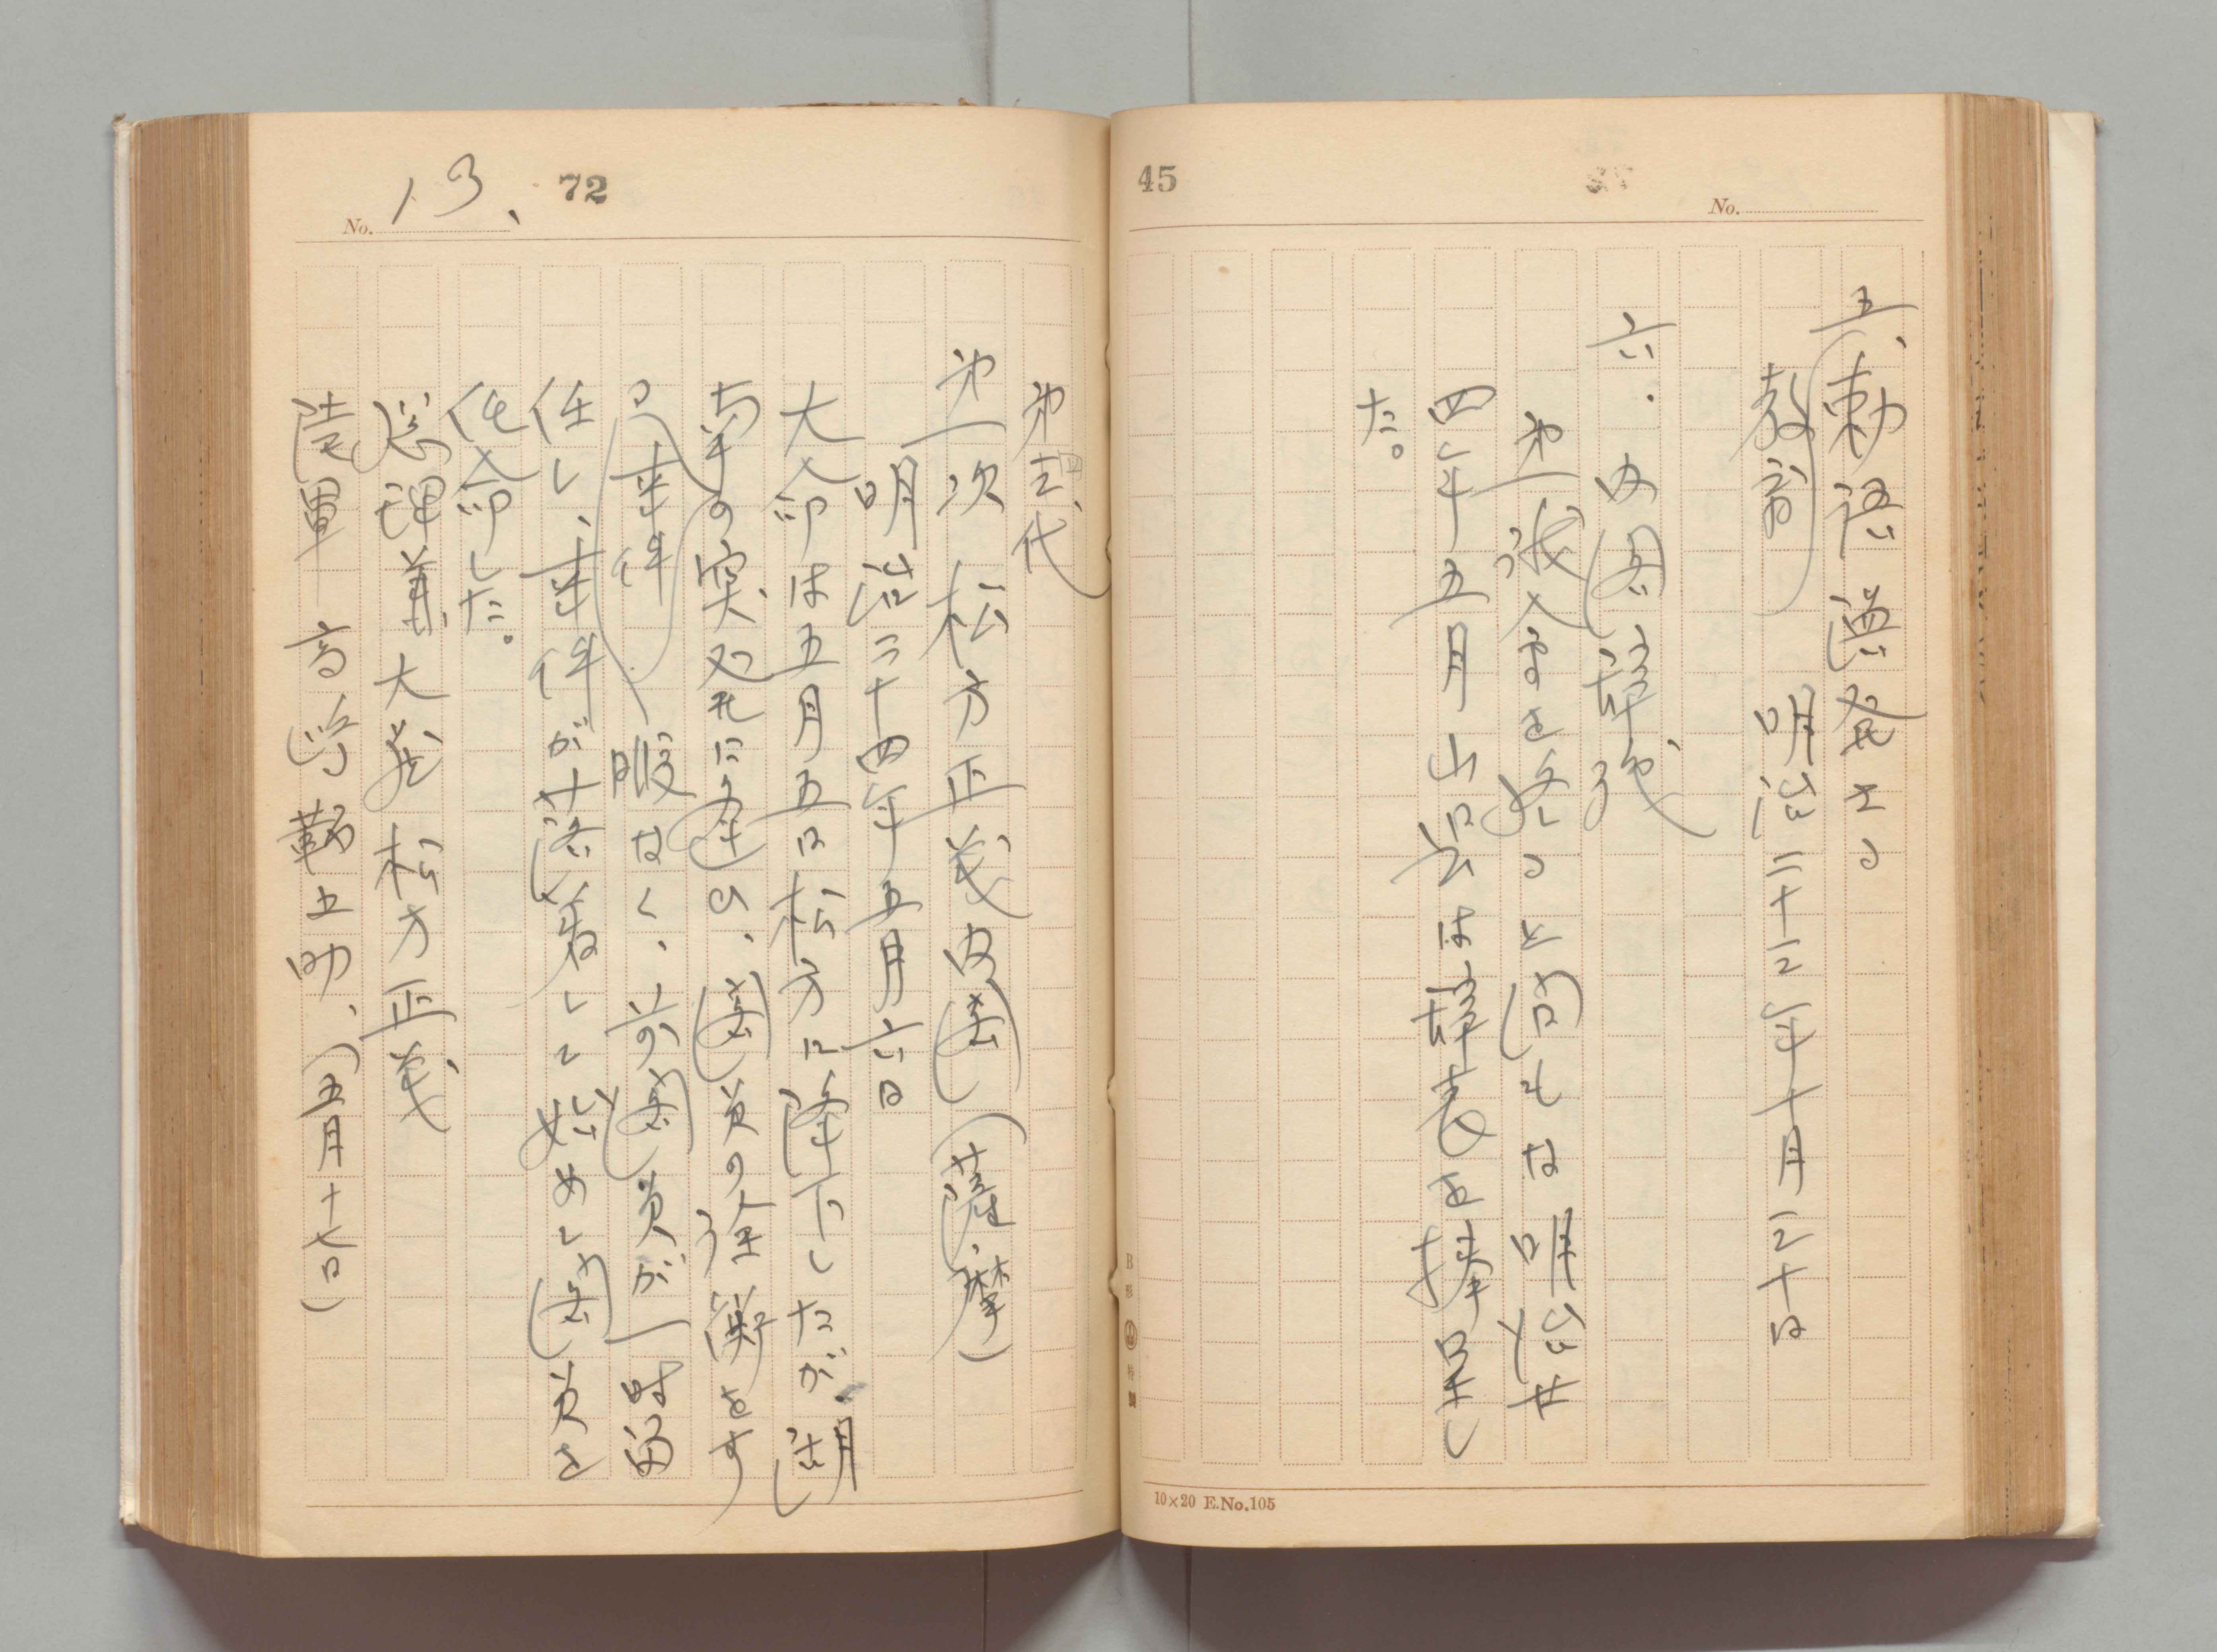 45
No.
五、勅語渙発さる
教育　明治二十三年十月三十日
六.内閣辞職
第一議会を終ると間もな明治廿
四年五月山県は辞表を捧呈し
た。
B形
10×20 E.No.105
No. 13、
72
第四代
第一次 松方正義内閣(薩摩)
明治二十四年五月六日
大命は五月五日松方に降下したが、湖
南の突発に遭ひ、閣員の詮衡をす
る(事件)暇なく、前閣員が一時留
任し、事件が落着して始めて閣員を
任命した。
総理兼大蔵 松方正義
陸軍 高島鞆之助、(五月十七日)